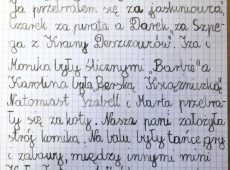 Ja przebrałem się za jaskiniowca,
Czarek za pirata a Darek za Szpe-
ga z "Krainy Deszczowców". Iza i
Monika były ślicznymi "Barbie" a
Karolina była Perską "Księżniczką"
Natomiast Izabell i Marta przebra-
ły się za koty. Nasza pani założyła
strój komika. Na balu były tańce gry
i zabawy, między innymi mini